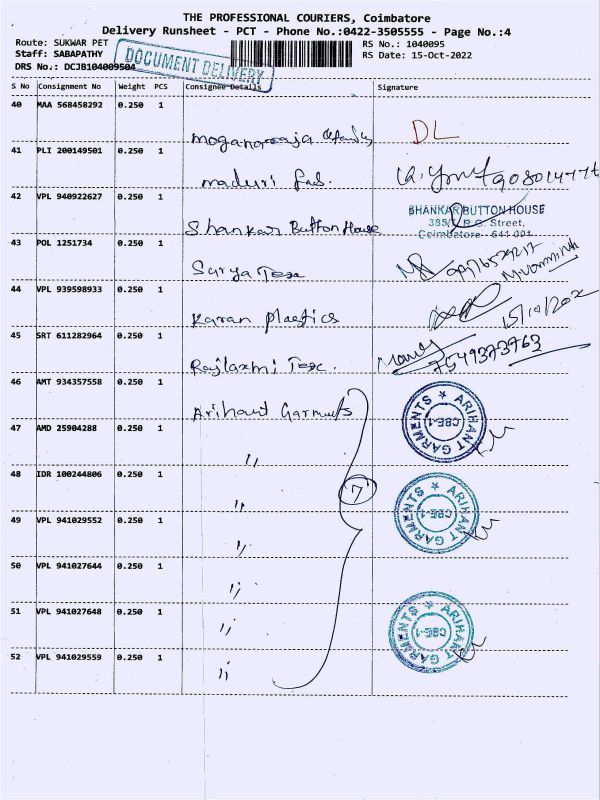 THE PROFESSIONAL COURIERS, Coimbatore
Delivery Runsheet - PCT - Phone No.:0422-3505555 - Page No.:4
Route: SUKWAR PET
RS No.: 1040095
Staff: SABAPATHY
RS Date: 15-Oct-2022
DRS No.: DCJB104009504
DOCUMENT DELIVERY
S No Consignment No Weight PCS Consignee Details Signature
40 MAA 568458292 0.250 1
DL
41 PLI 200149501 0.250 1
maduri
42 VPL 940922627 0.250 1
Shankar Button House
SHANKAR BUTTON HOUSE
Street,
Coimbatore - 641 001
43 POL 1251734 0.250 1
Surya Tex
44 VPL 939598933 0.250 1
Karan plastics
15/10/202
45 SRT 611282964 0.250 1
Rajlaxmi Tex.
7549373763
46 AMT 934357558 0.250 1
Arihant Garments
ARIHANT GARMENTS
CBE-1
47 AMD 25904288 0.250 1
〃
48 IDR 100244806 0.250 1
〃
7
ARIHANT GARMENTS
CBE-1
49 VPL 941029552 0.250 1
〃
50 VPL 941027644 0.250 1
〃
51 VPL 941027648 0.250 1
〃
ARIHANT GARMENTS
CBE-1
52 VPL 941029559 0.250 1
〃